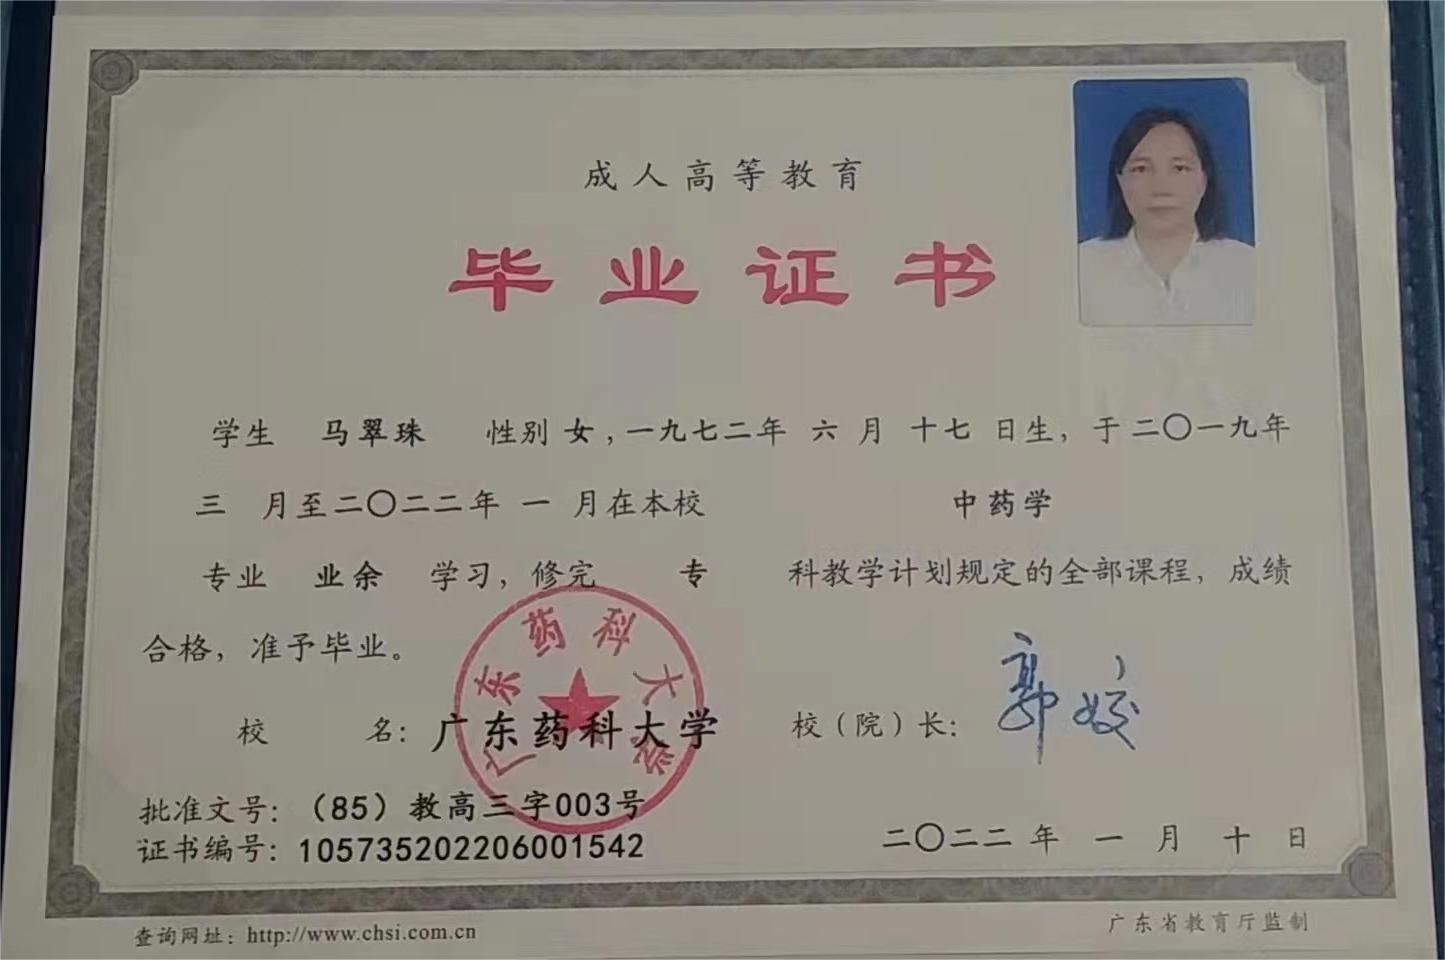 成人高等教育
毕业证书
学生 马翠珠 性别 女，一九七二年 六 月 十七 日生，于二〇一九年
三 月至二〇二二年 一 月在本校 中药学
专业 业余 学习，修完 专 科教学计划规定的全部课程，成绩
合格，准予毕业。
广东药科大学
校 名：广东药科大学 校（院）长：郭姣
批准文号：（85）教高三字003号
证书编号：105735202206001542
二〇二二 年 一 月 十 日
查询网址：http://www.chsi.com.cn
广东省教育厅监制